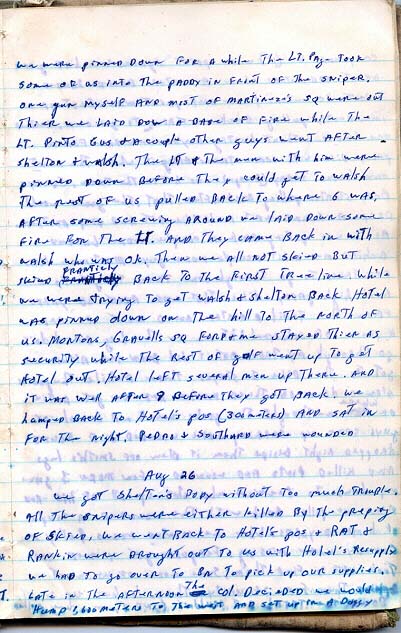 we were pinned down for a while The LT. Page Took
some of us into The paddy in front of The sniper.
one gun myself and most of Martinez's sq were out
Thier we laid dow a base of fire while The
LT. Pinto Gus & a couple other guys went after
shelton & walsh. The LT & The men with him were
pinned down before They could get to walsh
The rest of us pulled back to where 6 was,
after some screwing around we laid down some
fire for The LT. and They came back in with
walsh who was ok. Then we all not skied but
skied Franticly back to the first tree line while
we were trying to get walsh & shelton back Hotel
was pinned down on the hill to the north of
us. Mortons, Gravells sq for some stayed Thier as
security while the rest of golf went up to get
Hotel out. Hotel left several men up There. and
it was well after 9 before They got back. we
humped back to Hotel's pos (300 meters) and sat in
for the night. Pedro & Southard were wounded
Aug 26
we got Shelton's body without too much trouble.
All the snipers were either killed by the preping
of skied, we went back to Hotel's pos & Rat &
Rankin were brought out to us with Hotel's resupply
we had to go over to Bn to pick up our supplies.
Late in the afternoon The col. decided we would
Hump 1,600 meters to the west and set up in a Doggy